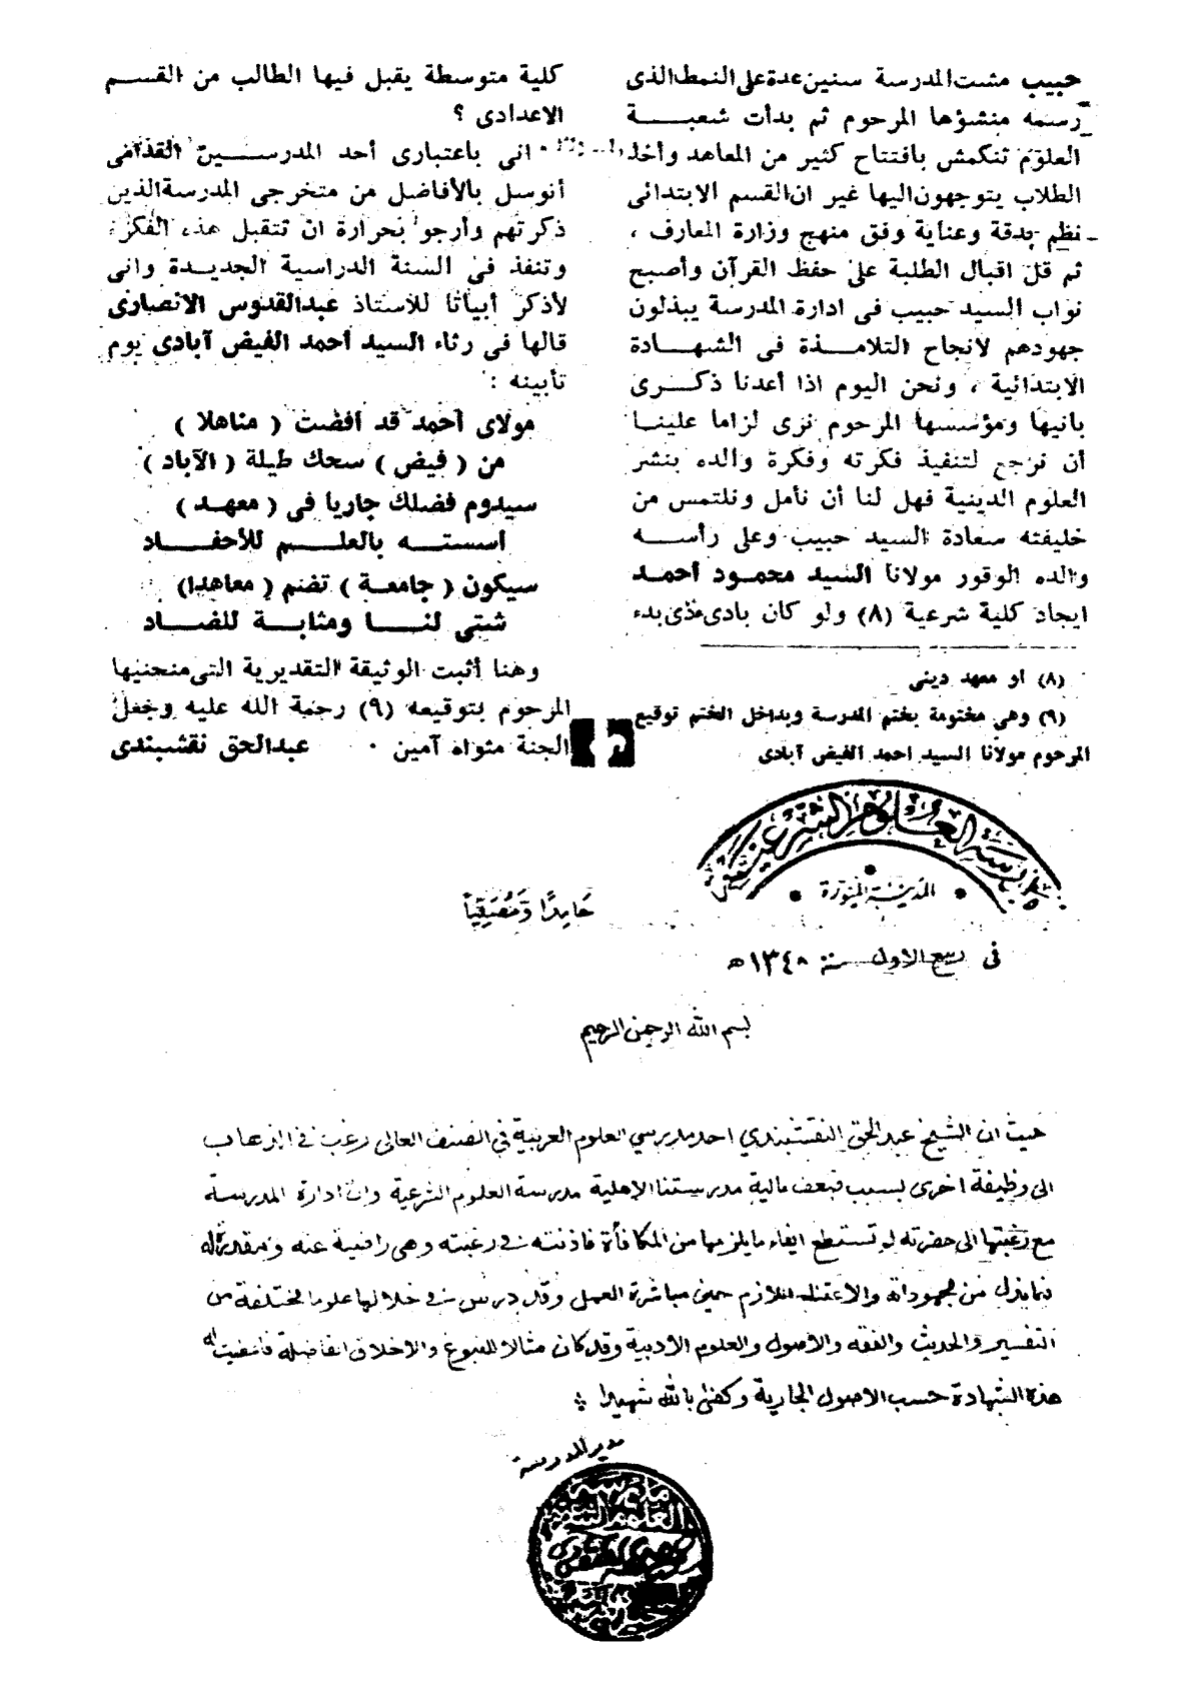 حبيب مشت المدرسة سنين عدة على النمط الذى
رسمه منشؤها المرحوم ثم بدأت شعبة
العلوم تنكمش بافتتاح كثير من المعاهد وأخذ
الطلاب يتوجهون اليها غير ان القسم الابتدائى
نظم بدقة وعناية وفق منهج وزارة المعارف ،
ثم قل اقبال الطلبة على حفظ القرآن وأصبح
نواب السيد حبيب فى ادارة المدرسة يبذلون
جهودهم لانجاح التلامذة فى الشهادة
الابتدائية ، ونحن اليوم اذا أعدنا ذكرى
بانيها ومؤسسها المرحوم نرى لزاما علينا
أن نرجع لتنفيذ فكرته وفكرة والده بنشر
العلوم الدينية فهل لنا أن نأمل ونلتمس من
خليفته سعادة السيد حبيب وعلى رأسه
والده الوقور مولانا السيد محمود أحمد
ايجاد كلية شرعية (٨) ولو كان بادى ذى بدء
(٨) او معهد دينى
(٩) وهى مختومة بختم المدرسة وبداخل الختم توقيع
المرحوم مولانا السيد احمد الفيض آبادى
كلية متوسطة يقبل فيها الطالب من القسم
الاعدادى ؟
انى باعتبارى أحد المدرسين القدامى
أتوسل بالأفاضل من متخرجى المدرسة الذين
ذكرتهم وأرجو بحرارة ان تتقبل هذه الفكرة
وتنفذ فى السنة الدراسية الجديدة وانى
لأذكر أبياتا للأستاذ عبدالقدوس الانصارى
قالها فى رثاء السيد أحمد الفيض آبادى يوم
تأبينه :
مولاى أحمد قد أفضت ( مناهلا )
من ( فيض ) سحك طيلة ( الآباد )
سيدوم فضلك جاريا فى ( معهد )
أسسته بالعلم للأحفاد
سيكون ( جامعة ) تضم ( معاهدا)
شتى لنا ومثابة للضاد
وهنا أثبت الوثيقة التقديرية التى منحنيها
المرحوم بتوقيعه (٩) رحمة الله عليه وجعل
الجنة مثواه آمين ٠ عبدالحق نقشبندى
مدرسة العلوم الشرعية
المدينة المنورة
حامدًا ومصليًا
فى ربيع الاول سنة ١٣٤٨ ه
بسم الله الرحمن الرحيم
حيث ان الشيخ عبد الحق النقشبندي احد مدرسي العلوم العربية في الصنف العالى رغب في الذهاب
الى وظيفة اخرى بسبب ضعف مالية مدرستنا الاهلية مدرسة العلوم الشرعية وان ادارة المدرسة
مع رغبتها الى حضرته لم تستطع ايفاء ما يلزمها من المكافأة فاذنته فى رغبته وهى راضية عنه ومقدرة له
فيما بذل من مجهوداته والاعتناء اللازم حين مباشرة العمل وقد درس فى خلالها علوما مختلفة من
التفسير والحديث والفقه والاصول والعلوم الادبية وقد كان مثالا للنبوغ والاخلاق الفاضلة فأمضيت له
هذه الشهادة حسب الاصول الجارية وكفى بالله شهيدا
مدير المدرسة
مدرسة
العلوم الشرعية